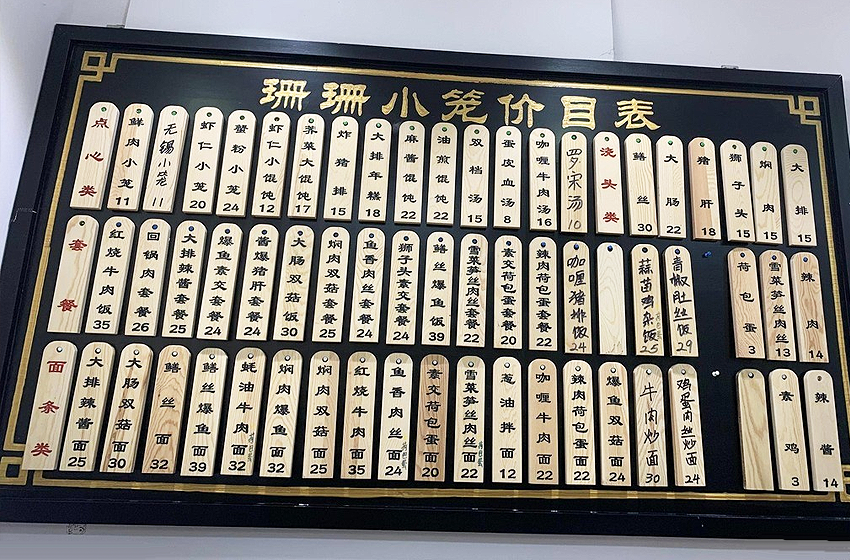 珊珊小笼价目表
点心类
鲜肉小笼 11
无锡小笼 11
虾仁小笼 20
蟹粉小笼 24
虾仁小馄饨 12
荠菜大馄饨 17
炸猪排 15
大排年糕 18
麻酱馄饨 22
油煎馄饨 22
双档汤 15
蛋皮血汤 8
咖喱牛肉汤 16
罗宋汤 10
浇头类
鳝丝 30
大肠 22
猪肝 18
狮子头 15
焖肉 15
大排 15
套餐
红烧牛肉饭 35
回锅肉套餐 26
大排辣酱套餐 25
爆鱼素交套餐 24
酱爆猪肝套餐 24
大肠双菇饭 30
焖肉双菇套餐 25
鱼香肉丝套餐 24
狮子头素交套餐 24
鳝丝爆鱼饭 39
雪菜笋丝肉丝套餐 22
素交荷包蛋套餐 20
辣肉荷包蛋套餐 22
咖喱猪排饭 24
蒜苗鸡杂饭 25
青椒肚丝饭 29
荷包蛋 3
雪菜笋丝肉丝 13
辣肉 14
面条类
大排辣酱面 25
大肠双菇面 30
鳝丝面 32
鳝丝爆鱼面 39
蚝油牛肉面 32
焖肉爆鱼面 32
焖肉双菇面 25
红烧牛肉面 35
鱼香肉丝面 24
素交荷包蛋面 20
雪菜笋丝肉丝面 22
葱油拌面 12
咖喱牛肉面 22
辣肉荷包蛋面 22
爆鱼双菇面 24
牛肉炒面 30
鸡蛋肉丝炒面 24
素鸡 3
辣酱 14